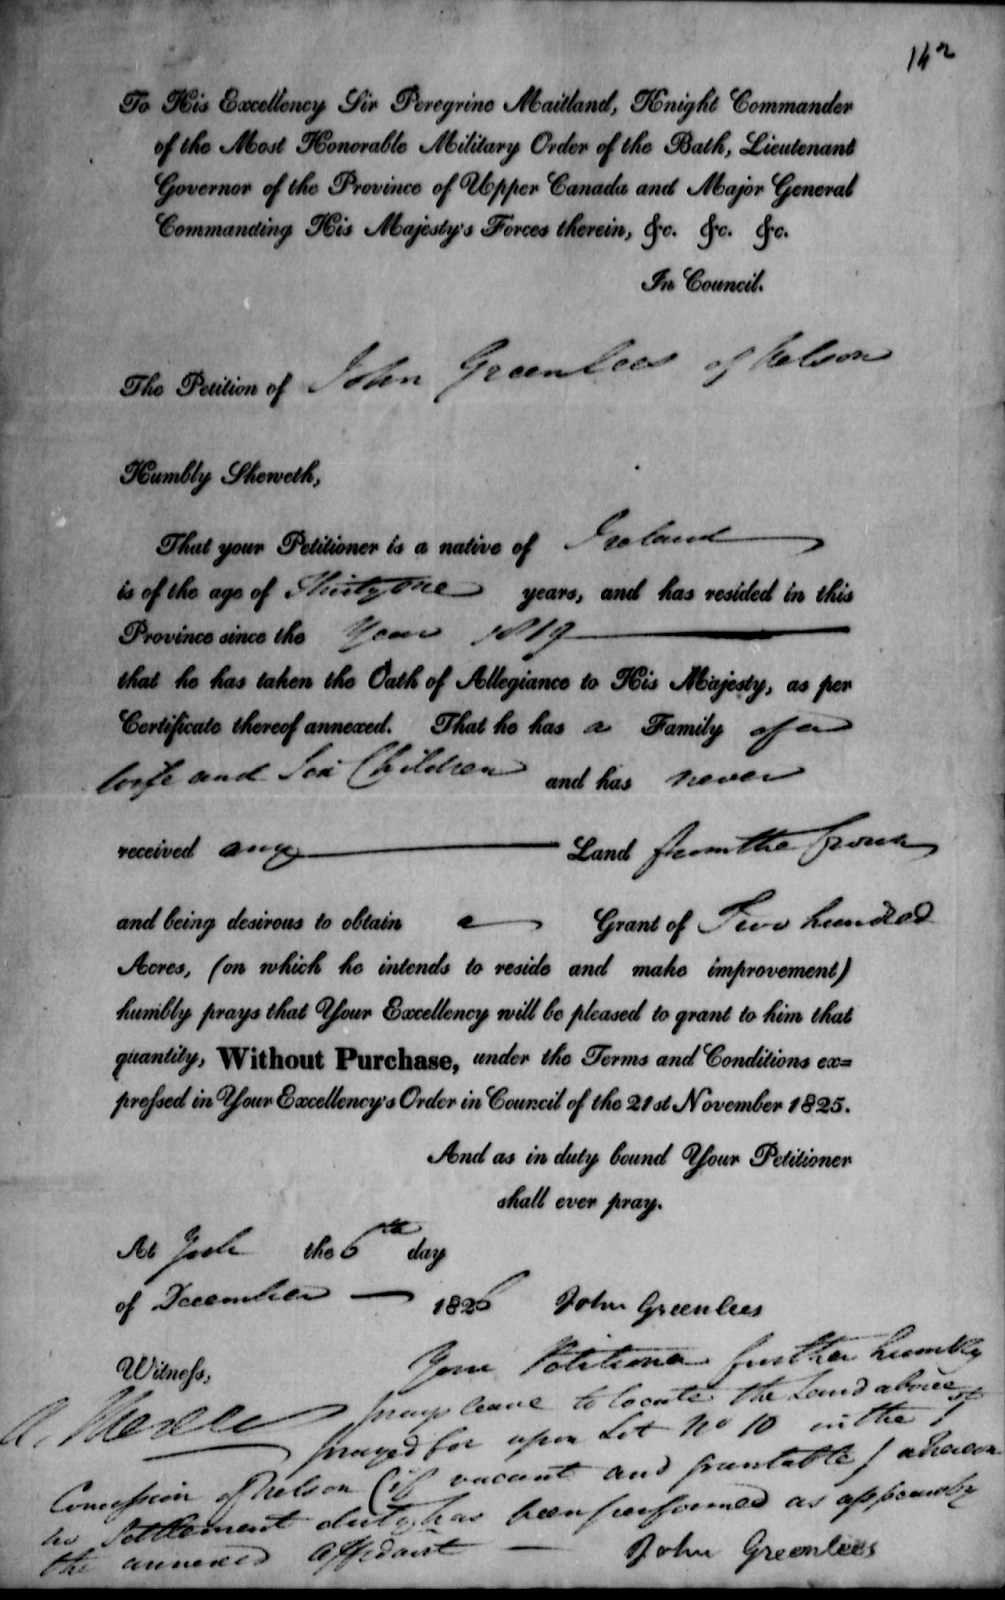 14 2
To His Excellency Sir Peregrine Maitland, Knight Commander
of the Most Honorable Military Order of the Bath, Lieutenant
Governor of the Province of Upper Canada and Major General
Commanding His Majesty's Forces therein, &c. &c. &c.
In Council.
The Petition of John Greenlees of Nelson
Humbly Sheweth,
That your Petitioner is a native of Ireland
is of the age of Thirty one years, and has resided in this
Province since the Year 1819
that he has taken the Oath of Allegiance to His Majesty, as per
Certificate thereof annexed. That he has a Family of a
wife and Six Children and has never
received any Land from the Crown
and being desirous to obtain a Grant of Two hundred
Acres, (on which he intends to reside and make improvement)
humbly prays that Your Excellency will be pleased to grant to him that
quantity, Without Purchase, under the Terms and Conditions ex=
pressed in Your Excellency's Order in Council of the 21st November 1825.
And as in duty bound Your Petitioner
shall ever pray.
At York the 6th day
of December 1826 John Greenlees
Witness, Your Petitioner further humbly
A. prays leave to locate the Land above
prayed for upon Lot No 10 in the 1st
Concession of Nelson (if vacant and grantable) whereon
no Settlement duty has been performed as appears by
the annexed affidavit John Greenlees